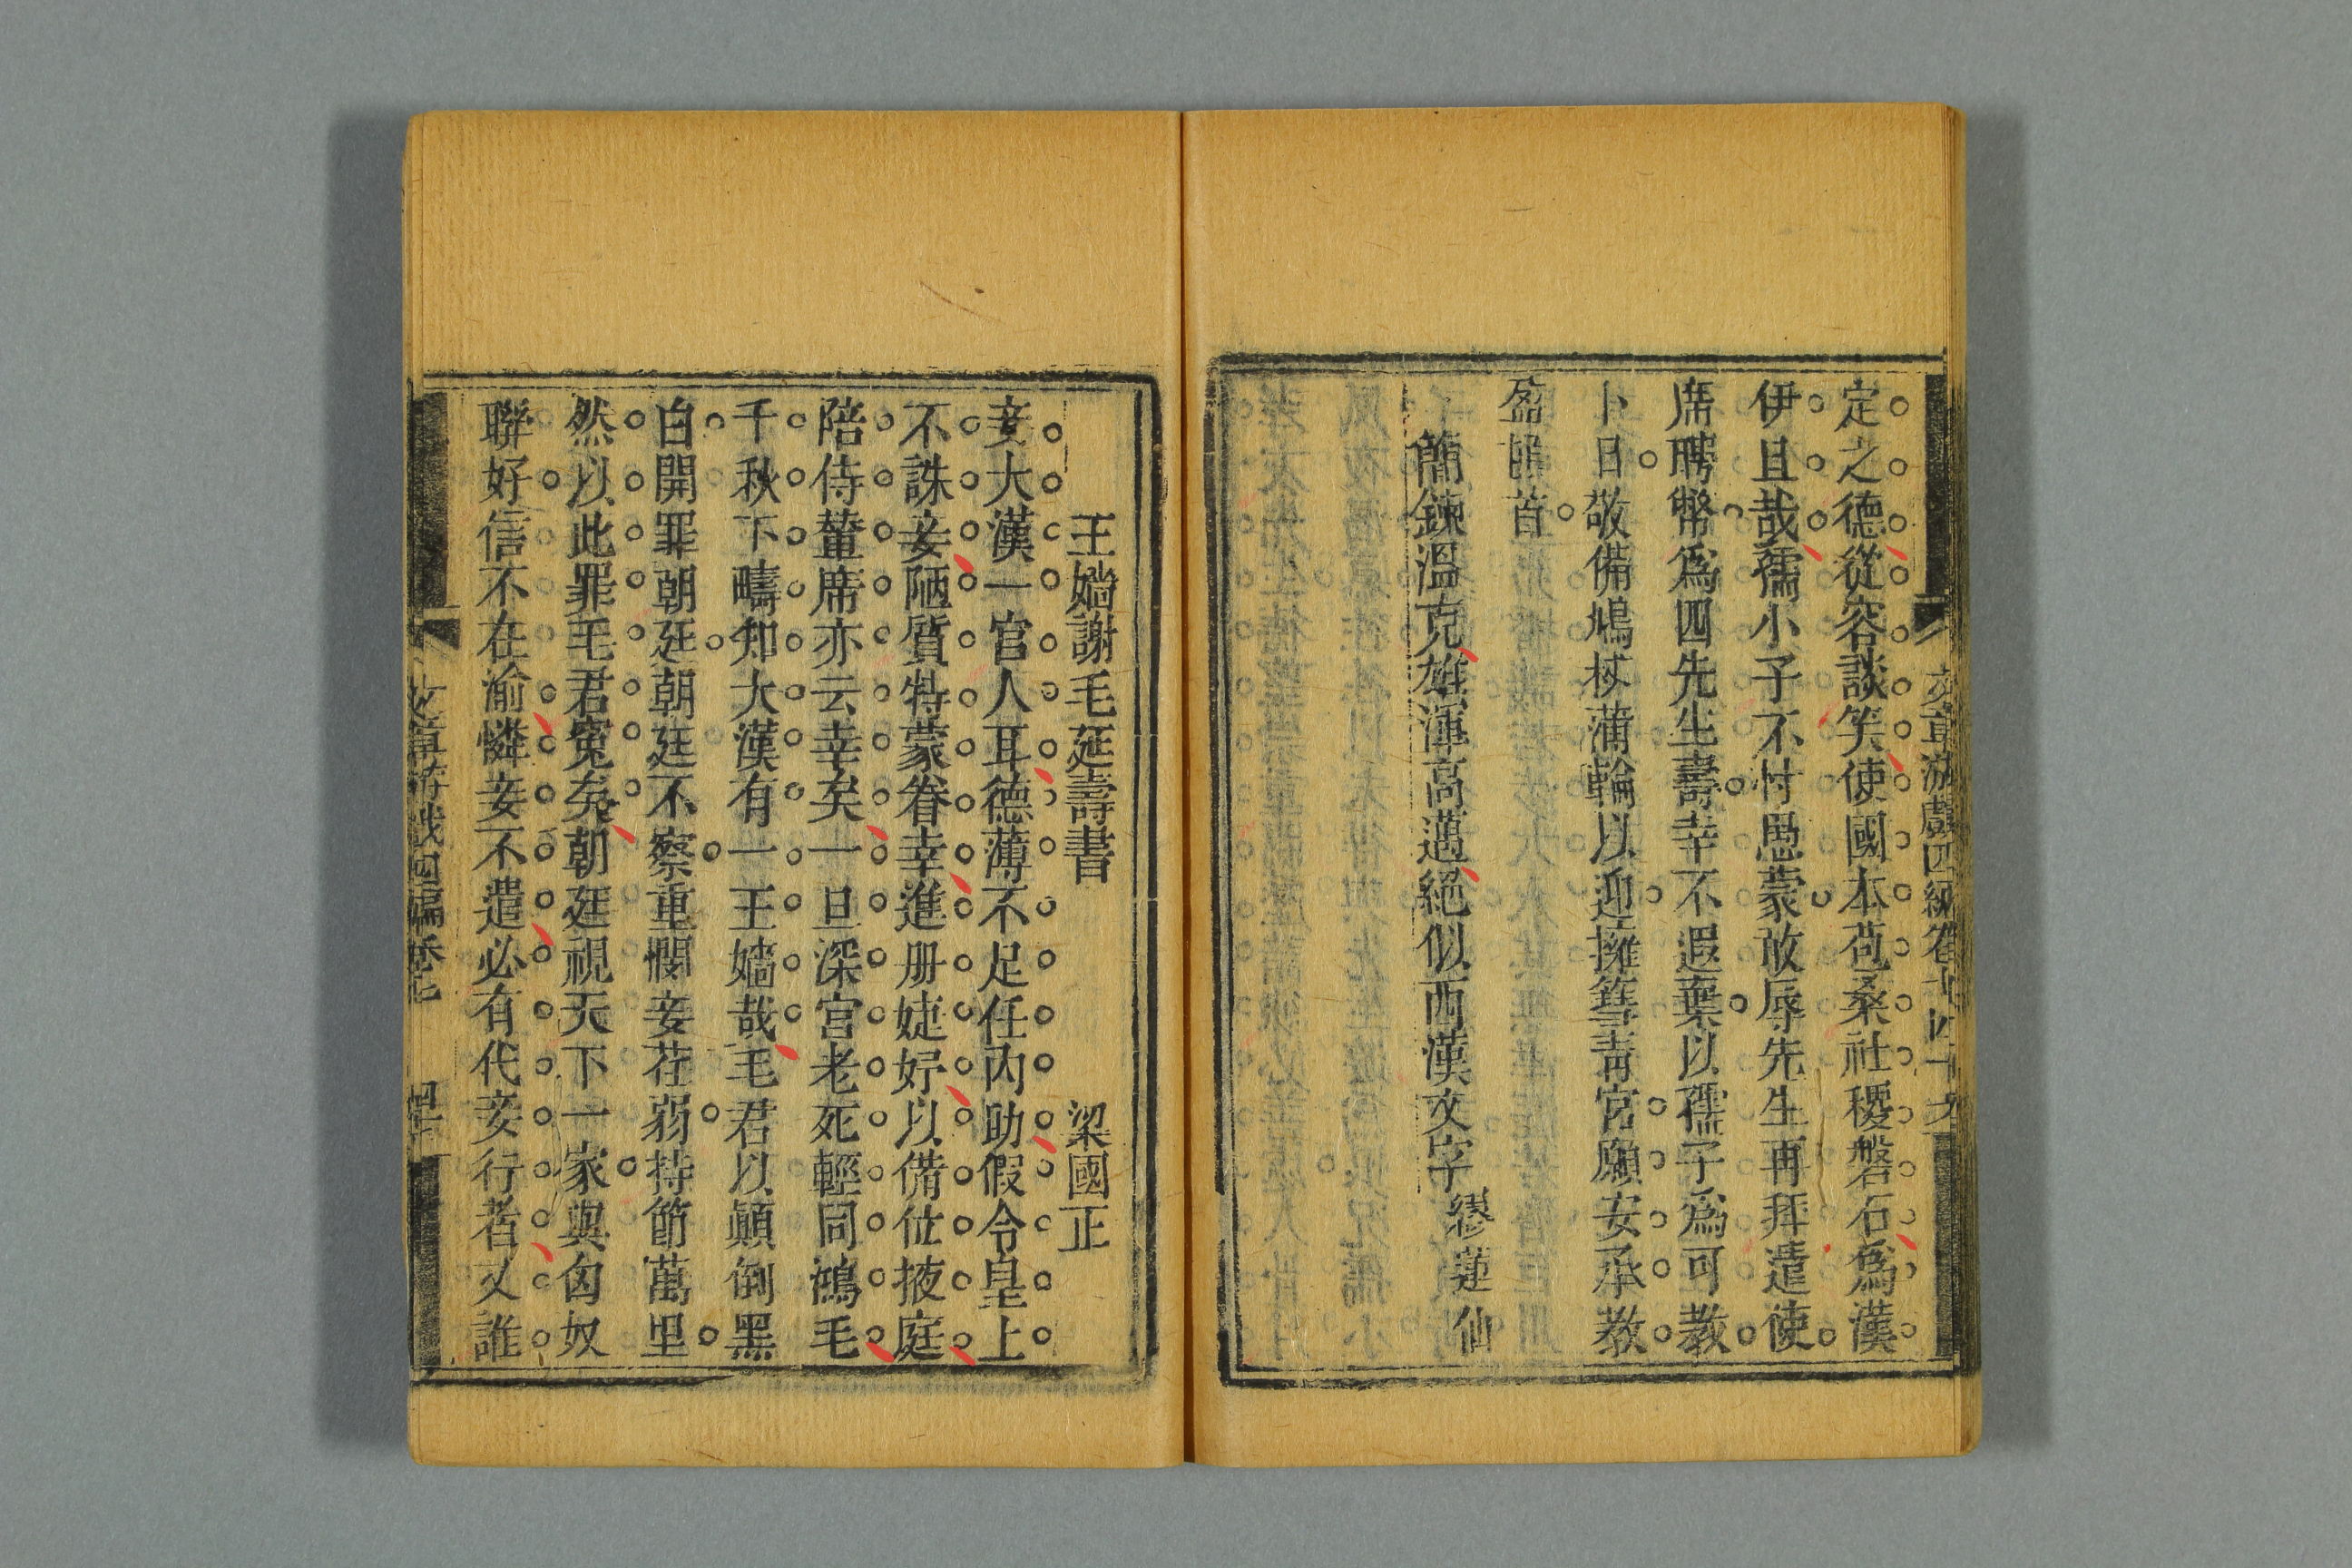 定之德從容談笑使國本苞桑社稷磐石爲漢
伊且哉孺小子不忖愚蒙敢辱先生再拜遣使
席聘幣爲四先生壽幸不遐棄以孺子爲可教
卜日敬備鳩杖蒲輪以迎擁篲青宮願安承教
盈 首
簡鍊溫克雄渾高邁絕似西漢文字 繆蓮仙
王嬙謝毛延壽書 梁國正
妾大漢一宮人耳德薄不足任內助假令皇上
不誅妾陋質特蒙眷幸進册婕妤以備位掖庭
陪侍輦席亦云幸矣一旦深宮老死輕同鴻毛
千秋下疇知大漢有一王嬙哉毛君以顛倒黑
白開罪朝廷朝廷不察重憫妾荏弱持節萬里
然以此罪毛君寃矣朝廷視天下一家與匈奴
聯好信不在渝憐妾不遣必有代妾行者又誰
文章游戲四編卷七